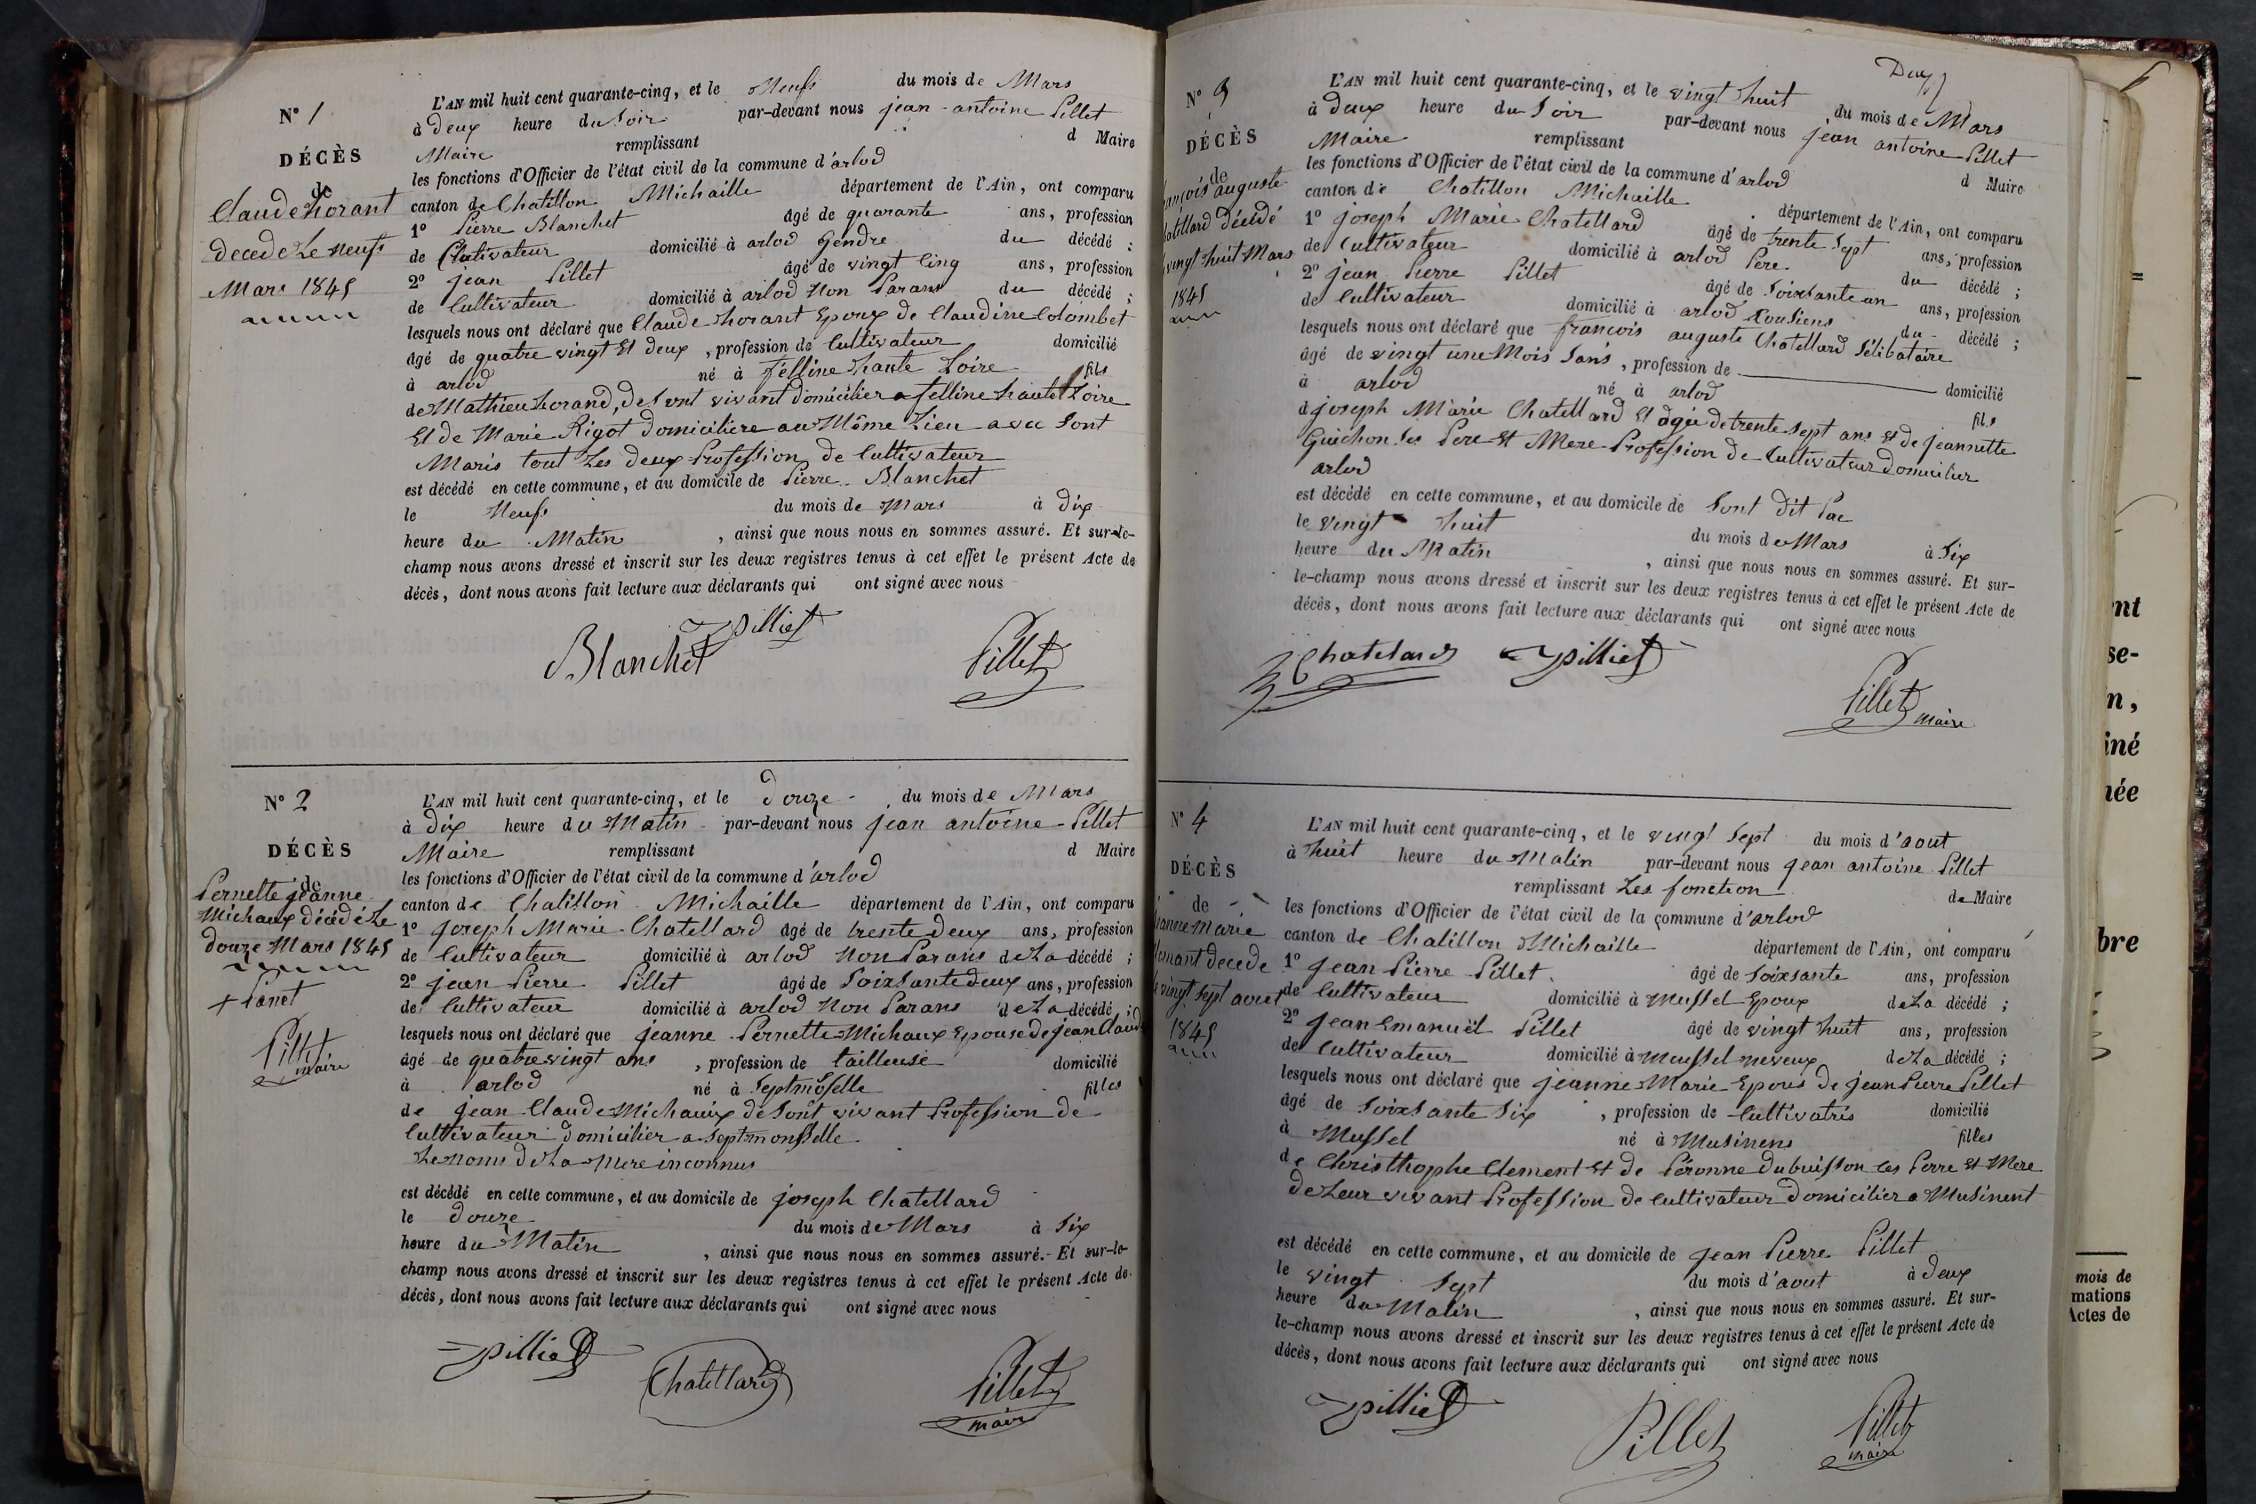 N° 1
DÉCÈS
de
Claude horant
decede Le neufs
Mars 1845
L'AN mil huit cent quarante-cinq, et le Neufs du mois de Mars
à deux heure du Soir par-devant nous jean-antoine Pillet
Maire remplissant d Maire
les fonctions d'Officier de l'état civil de la commune d'arlod
canton de Chatillon Michaille département de l'Ain, ont comparu
1° Pierre Blanchet âgé de quarante ans, profession
de Cultivateur domicilié à arlod Gendre du décédé ;
2° jean Pillet âgé de vingt Cinq ans, profession
de Cultivateur domicilié à arlod Non Parans du décédé ;
lesquels nous ont déclaré que Claude horant Epoux de Claudine Colombet
âgé de quatre vingt Et deux, profession de Cultivateur domicilié
à arlod né à felline haute Loire fils
de Mathieu horand, de Sont vivant domicilier a felline haute Loire
Et de Marie Rigot domiciliere au Même Lieu avec Sont
Maris tout Les deux Profession de Cultivateur
est décédé en cette commune, et au domicile de Pierre Blanchet
le Neufs du mois de Mars à dix
heure du Matin, ainsi que nous nous en sommes assuré. Et sur-le-
champ nous avons dressé et inscrit sur les deux registres tenus à cet effet le présent Acte de
décès, dont nous avons fait lecture aux déclarants qui ont signé avec nous
Blanchet pilliet Pillet
N° 2
DÉCÈS
de
Pernette jeanne
Michaux décédé Le
douze Mars 1845
+ Panet
Pillet
maire
L'AN mil huit cent quarante-cinq, et le douze du mois de Mars
à dix heure du Matin par-devant nous jean antoine Pillet
Maire remplissant d Maire
les fonctions d'Officier de l'état civil de la commune d'arlod
canton de Chatillon Michaille département de l'Ain, ont comparu
1° joseph Marie Chatellard âgé de trente deux ans, profession
de Cultivateur domicilié à arlod Non Parans de La décédé ;
2° jean Pierre Pillet âgé de Soixsante deux ans, profession
de Cultivateur domicilié à arlod Non Parans de La décédé ;
lesquels nous ont déclaré que jeanne Pernette Michaux Epouse de jean Claud
âgé de quatre vingt ans, profession de tailleuse domicilié
à arlod né à Septmoselle filles
de jean Claude Michaux de Sont vivant Profession de
Cultivateur domicilier a Septmonsselle
Le noms de La Mere inconnus
est décédé en cette commune, et au domicile de joseph Chatellard
le douze du mois de Mars à Six
heure du Matin, ainsi que nous nous en sommes assuré. Et sur-le-
champ nous avons dressé et inscrit sur les deux registres tenus à cet effet le présent Acte de
décès, dont nous avons fait lecture aux déclarants qui ont signé avec nous
pilliet Chatellard Pillet
maire
N° 3
DÉCÈS
de
ançois auguste
hatellard décédé
vingt huit Mars
1845
Deux
L'AN mil huit cent quarante-cinq, et le vingt huit du mois de Mars
à deux heure du Soir par-devant nous jean antoine Pillet
Maire remplissant d Maire
les fonctions d'Officier de l'état civil de la commune d'arlod
canton de Chatillon Michaille département de l'Ain, ont comparu
1° joseph Marie Chatellard âgé de trente Sept ans, profession
de Cultivateur domicilié à arlod Pere du décédé ;
2° jean Pierre Pillet âgé de Soixsante un ans, profession
de Cultivateur domicilié à arlod Cousiens du décédé ;
lesquels nous ont déclaré que francois auguste Chatellard Sélibataire
âgé de vingt une Mois Sans, profession de domicilié
à arlod né à arlod fils
d joseph Marie Chatellard Et agée de trente Sept ans Et de jeannette
Guichon Ses Pere Et Mere Profession de Cultivateur domicilier
arlod
est décédé en cette commune, et au domicile de Sont dit Pae
le vingt huit du mois de Mars à Six
heure du Matin, ainsi que nous nous en sommes assuré. Et sur-
le-champ nous avons dressé et inscrit sur les deux registres tenus à cet effet le présent Acte de
décès, dont nous avons fait lecture aux déclarants qui ont signé avec nous
Chatelard pilliet
Pillet
maire
N° 4
DÉCÈS
de
eanne Marie
lemant decede
vingt sept aout
1845
L'AN mil huit cent quarante-cinq, et le vingt Sept du mois d'aout
à huit heure du Matin par-devant nous jean antoine Pillet
remplissant Les fonction de Maire
les fonctions d'Officier de l'état civil de la commune d'arlod
canton de Chatillon Michaille département de l'Ain, ont comparu
1° jean Pierre Pillet âgé de Soixsante ans, profession
de Cultivateur domicilié à Mussel Epoux de La décédé ;
2° jean Emanuël Pillet âgé de vingt huit ans, profession
de Cultivateur domicilié à Meussel neveux de La décédé ;
lesquels nous ont déclaré que jeanne Marie Epous de jean Pierre Pillet
âgé de Soixsante Six, profession de Cultivatris domicilié
à Mussel né à Musinens filles
de Christhophe Clement Et de Péronne dubuisson les Perre Et Mere
de Leur vivant Profession de Cultivateur domicilier a Musinent
est décédé en cette commune, et au domicile de jean Pierre Pillet
le vingt Sept du mois d'aout à deux
heure du Matin, ainsi que nous nous en sommes assuré. Et sur-
le-champ nous avons dressé et inscrit sur les deux registres tenus à cet effet le présent Acte de
décès, dont nous avons fait lecture aux déclarants qui ont signé avec nous
pilliet Pillet Pillet
maire
nt
se-
n,
iné
née
bre
mois de
mations
Actes de